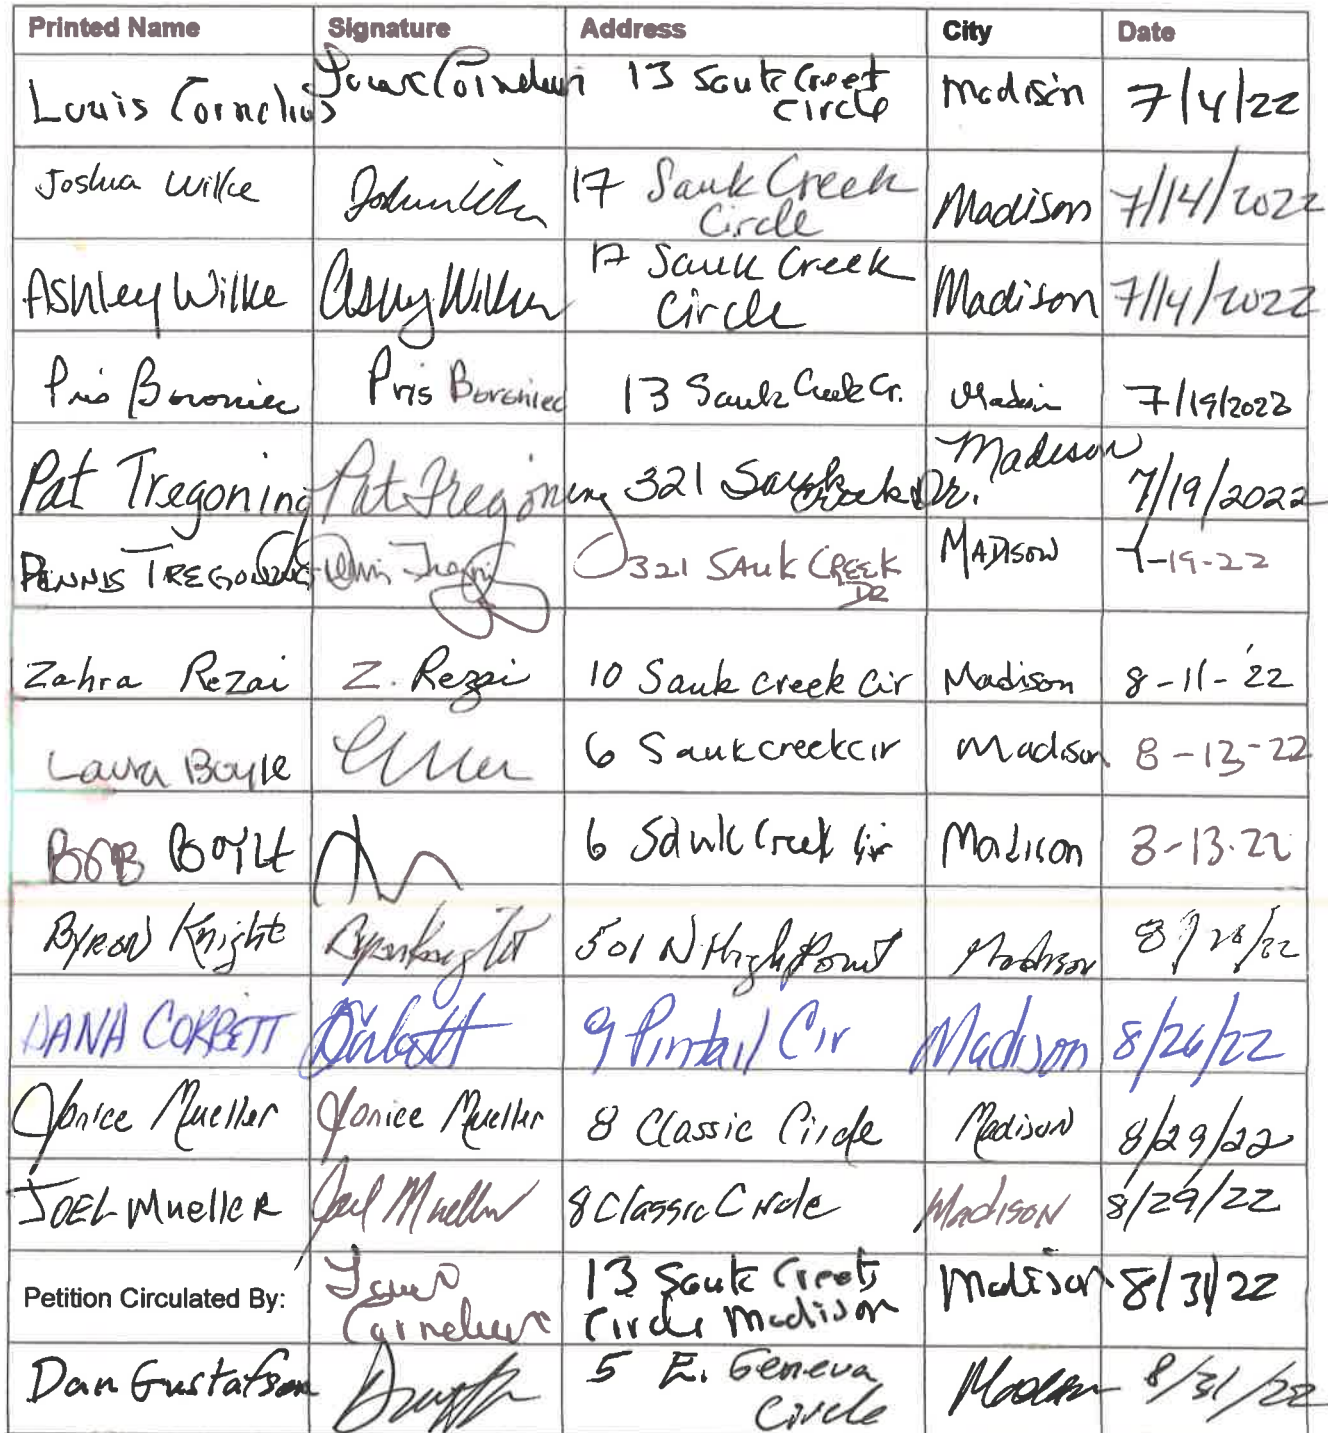 Printed Name Signature Address City Date
Louis Cornelius Louis Cornelius 13 Sauk Creek Circle Madison 7/4/22
Joshua Wilke 17 Sauk Creek Circle Madison 7/14/2022
Ashley Wilke Ashley Wilke 17 Sauk Creek Circle Madison 7/14/2022
Pris Boroniec Pris Boroniec 13 Sauk Creek Cr. Madison 7/19/2022
Pat Tregoning Pat Tregoning 321 Sauk Creek Dr. Madison 7/19/2022
Dennis Tregoning Dennis Tregoning 321 Sauk Creek Dr Madison 7-19-22
Zahra Rezai Z. Rezai 10 Sauk creek cir Madison 8-11-'22
Laura Boyle 6 Sauk creek cir Madison 8-13-22
BOB Boyle 6 Sauk Creek Cir Madison 8-13-22
Byron Knight Byron Knight 501 N High Point Madison 8/26/22
DANA CORBETT 9 Pintail Cir Madison 8/26/22
Janice Mueller Janice Mueller 8 Classic Circle Madison 8/29/22
JOEL Mueller Joel Mueller 8 Classic Circle Madison 8/29/22
Petition Circulated By: Louis Cornelius 13 Sauk Creek Circle Madison Madison 8/31/22
Dan Gustafson 5 E. Geneva Circle Madison 8/31/22